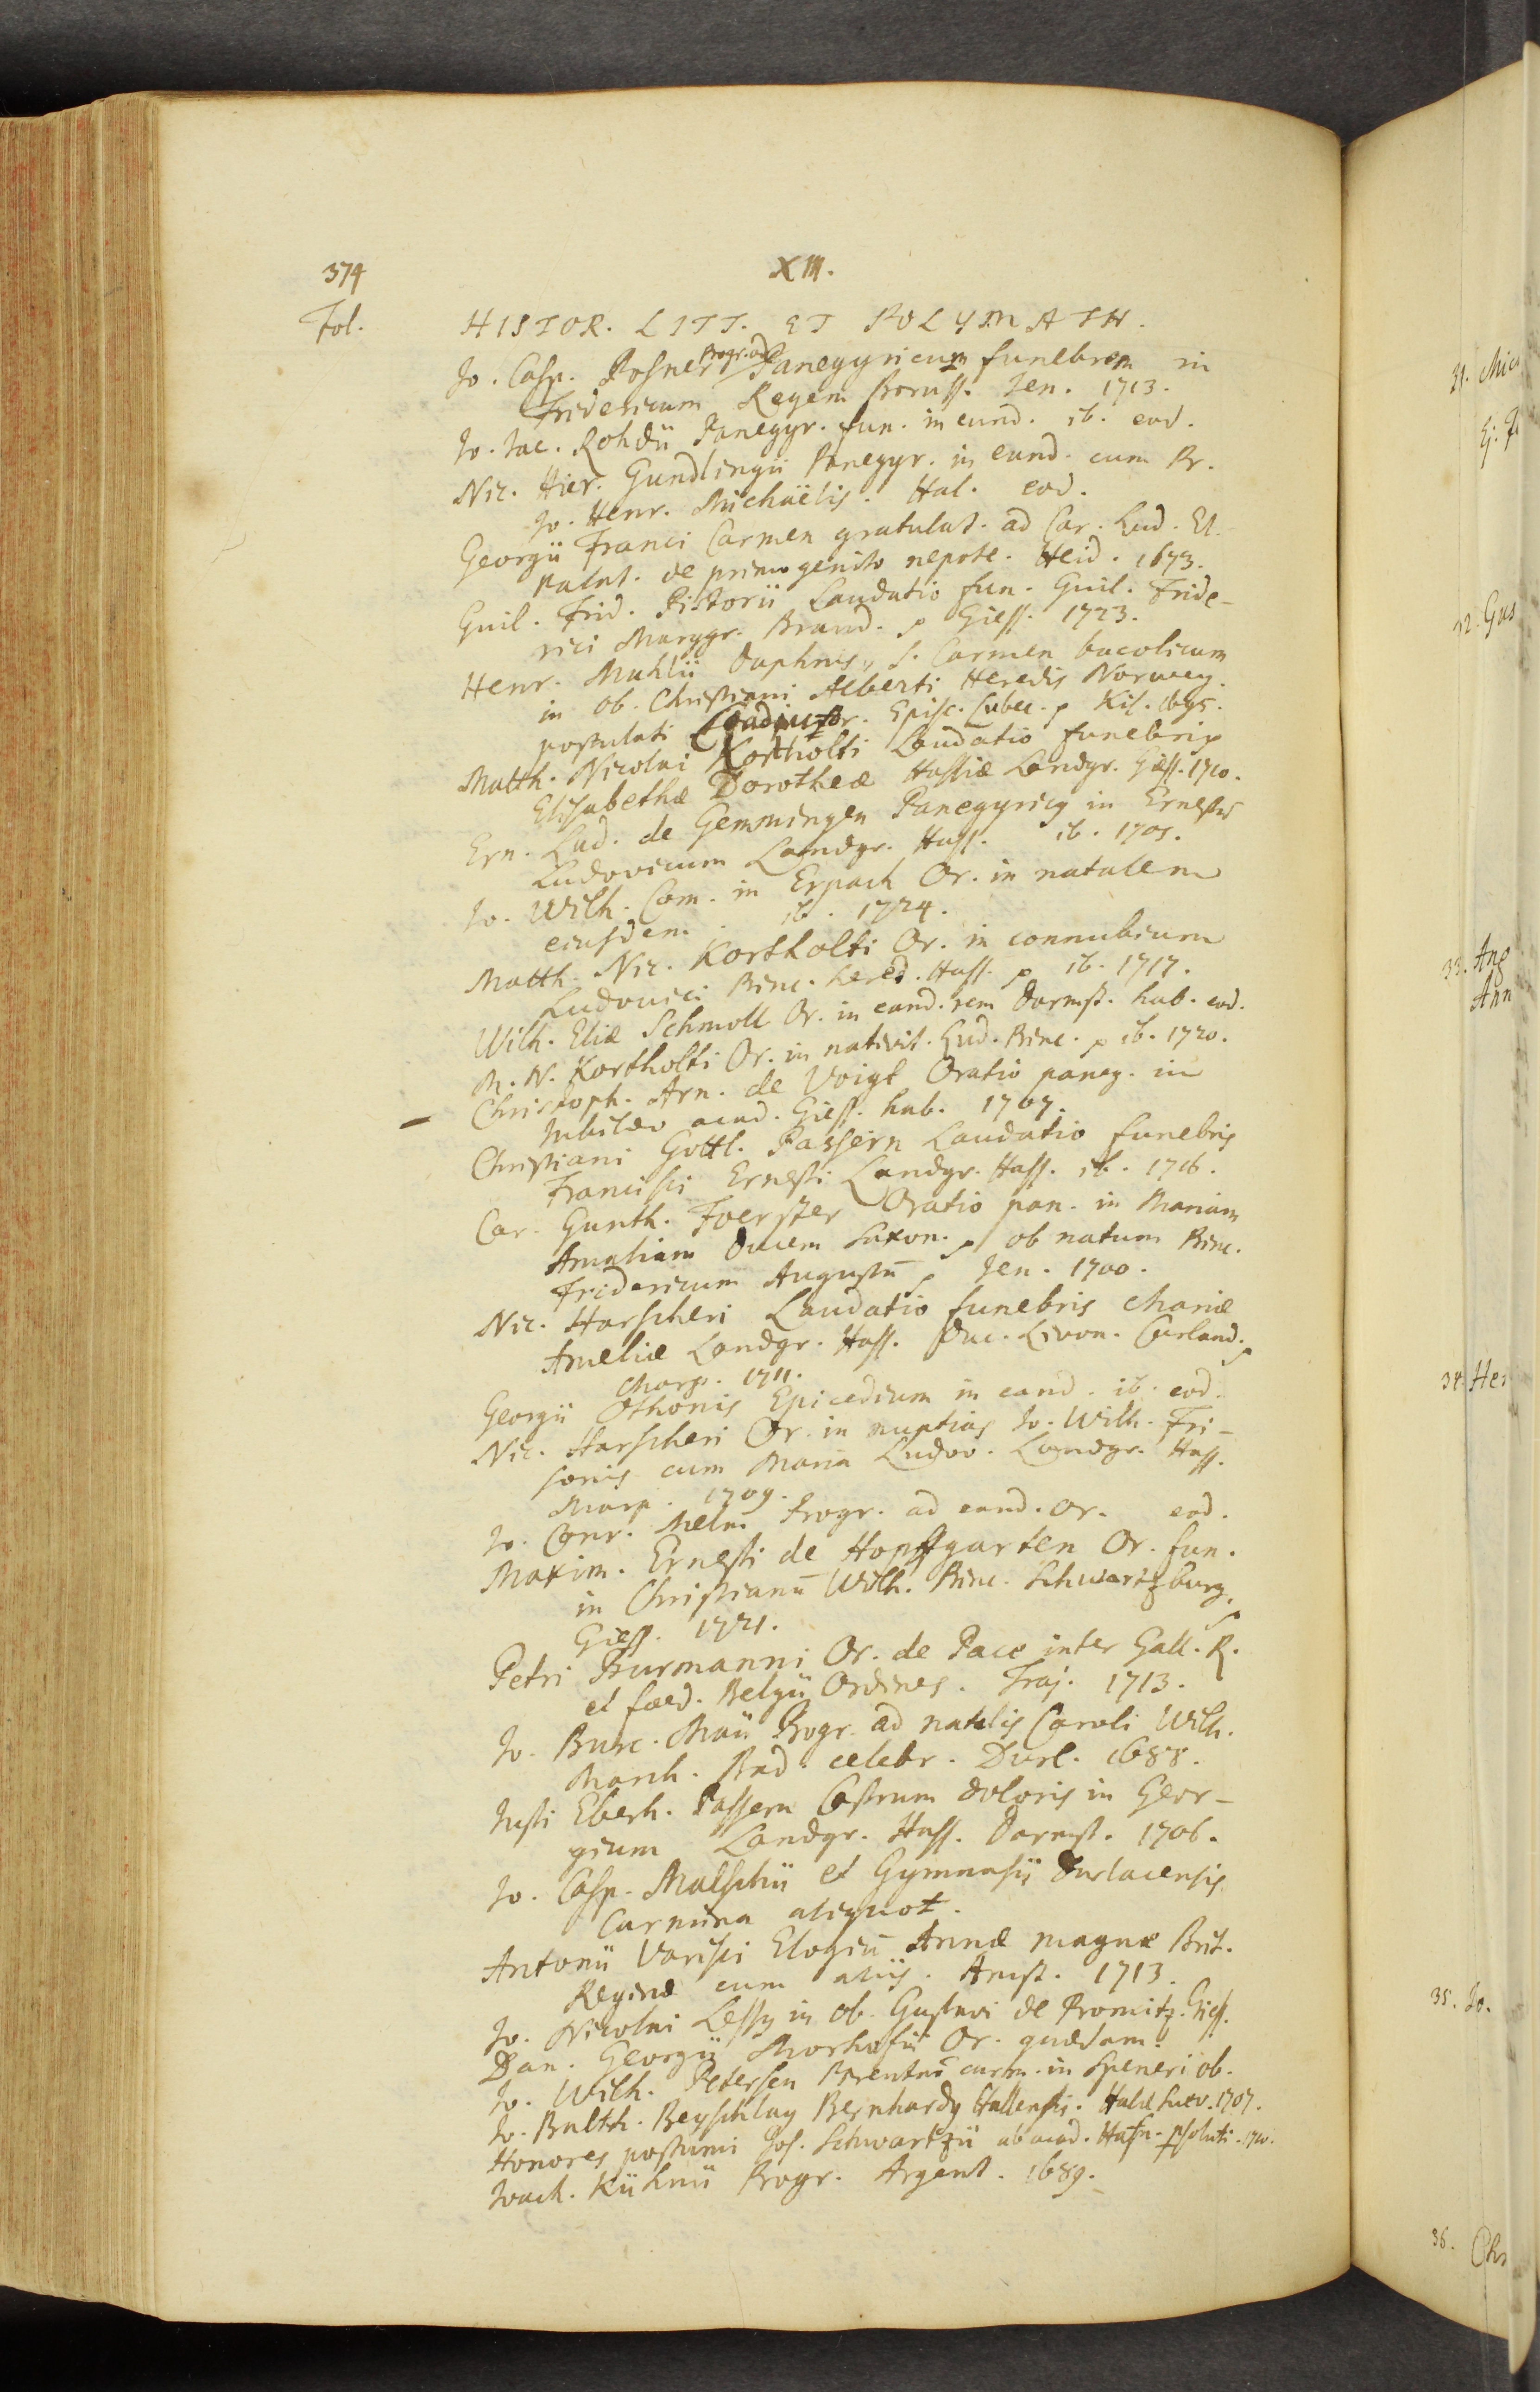 374
XIII.
Fol.
HISTOR. LITT. ET POLYMATH.
Jo. Casp. Posner Progr. ad Panegyricum funebrem in
Fridericum Regem Boruss. Jen. 1713.
Jo. Jac. Rohdii Panegyr. fun. in eund. ib. eod.
Nic. Hier. Gundlingii Panegyr. in eund. cum Pr.
Jo. Henr. Michaëlis. Hal. eod.
Georgii Franci Carmen gratulat. ad Car. Lud. El.
Palat. de primogenito nepote. Heid. 1673.
Guil. Frid. Pistorii Laudatio fun. Guil. Fride-
rici Marggr. Brand. p Giess. 1723.
Henr. Muhlii Daphnis, s. Carmen bucolicum
in ob. Christiani Alberti Heredis Norweg.
postulati Coadiutor. Episc. Lubec. p Kil. 1695.
Matth. Nicolai Kortholti Laudatio funebris
Elisabethæ Dorotheæ Hassiæ Landgr. Giess. 1710.
Ern. Lud. de Gemmingen Panegyricus in Ernestū
Ludovicum Landgr. Hass. ib. 1705.
Jo. Wilh. Com. in Erpach Or. in natalem
eiusdem. ib. 1724.
Matth. Nic. Kortholti Or. in connubium
Ludovici Princ. hered. Hass. p ib. 1717.
Wilh. Eliæ Schmoll Or. in eand. rem Darmst. hab. eod.
M. N. Kortholti Or. in nativit. Lud. Princ. p ib. 1720.
Christoph. Arn. de Voigt Oratio paneg. in
– Jubilæo acad. Giess. hab. 1707.
Christiani Gottl. Passern Laudatio funebris
Francisci Ernesti Landgr. Hass. ib. 1716.
Car. Gunth. Foerster Oratio pan. in Mariam
Amaliam Ducem Saxon. p ob natum Princ.
Fridericum Augustū p Jen. 1700.
Nic. Harscheri Laudatio funebris Mariæ
Ameliæ Landgr. Hass. Duc. Livon. Curland. p
Marp. 1711.
Georgii Othonis Epicedium in eand. ib. eod.
Nic. Harscheri Or. in nuptias Jo. Wilh. Fri-
sonis cum Maria Ludov. Landgr. Hass.
Marp. 1709.
Jo. Conr. Melm Progr. ad eand. or. eod.
Maxim. Ernesti de Hopffgarten Or. fun.
in Christianū Wilh. Princ. Schwartzburg. p
Giess. 1721.
Petri Burmanni Or. de Pace inter Gall. R.
et fœd. Belgii Ordines. Traj. 1713.
Jo. Burc. Maii Progr. ad natalis Caroli Wilh.
March. Bad. celebr. Durl. 1688.
Justi Eberh. Passern Castrum doloris in Geor-
gium Landgr. Hass. Darmst. 1706.
Jo. Casp. Malschii et Gymnasii Durlacensis
Carmina aliquot.
Antonii Varisci Elogiū Annæ magnæ Brit.
Reginæ cum aliis. Amst. 1713.
Jo. Nicolai Less in ob. Gustavi de Promitz. Giess.
Dan. Georgii Morhofii Or. quædam.
Jo. Wilh. Petersen carm. in Speneri ob.
Jo. Balth. Beyschlag Bernhardus Hallensis. Halæ Suev. 1707.
Honores postumi Jos. Schwartzii ab acad. Hafn. psoluti. 1710.
Joach. Kühnii Progr. Argent. 1689.
31. Mic
Ej.
32. Gus
33. Ang
Ann
34. Her
35. Jo.
36. Chr